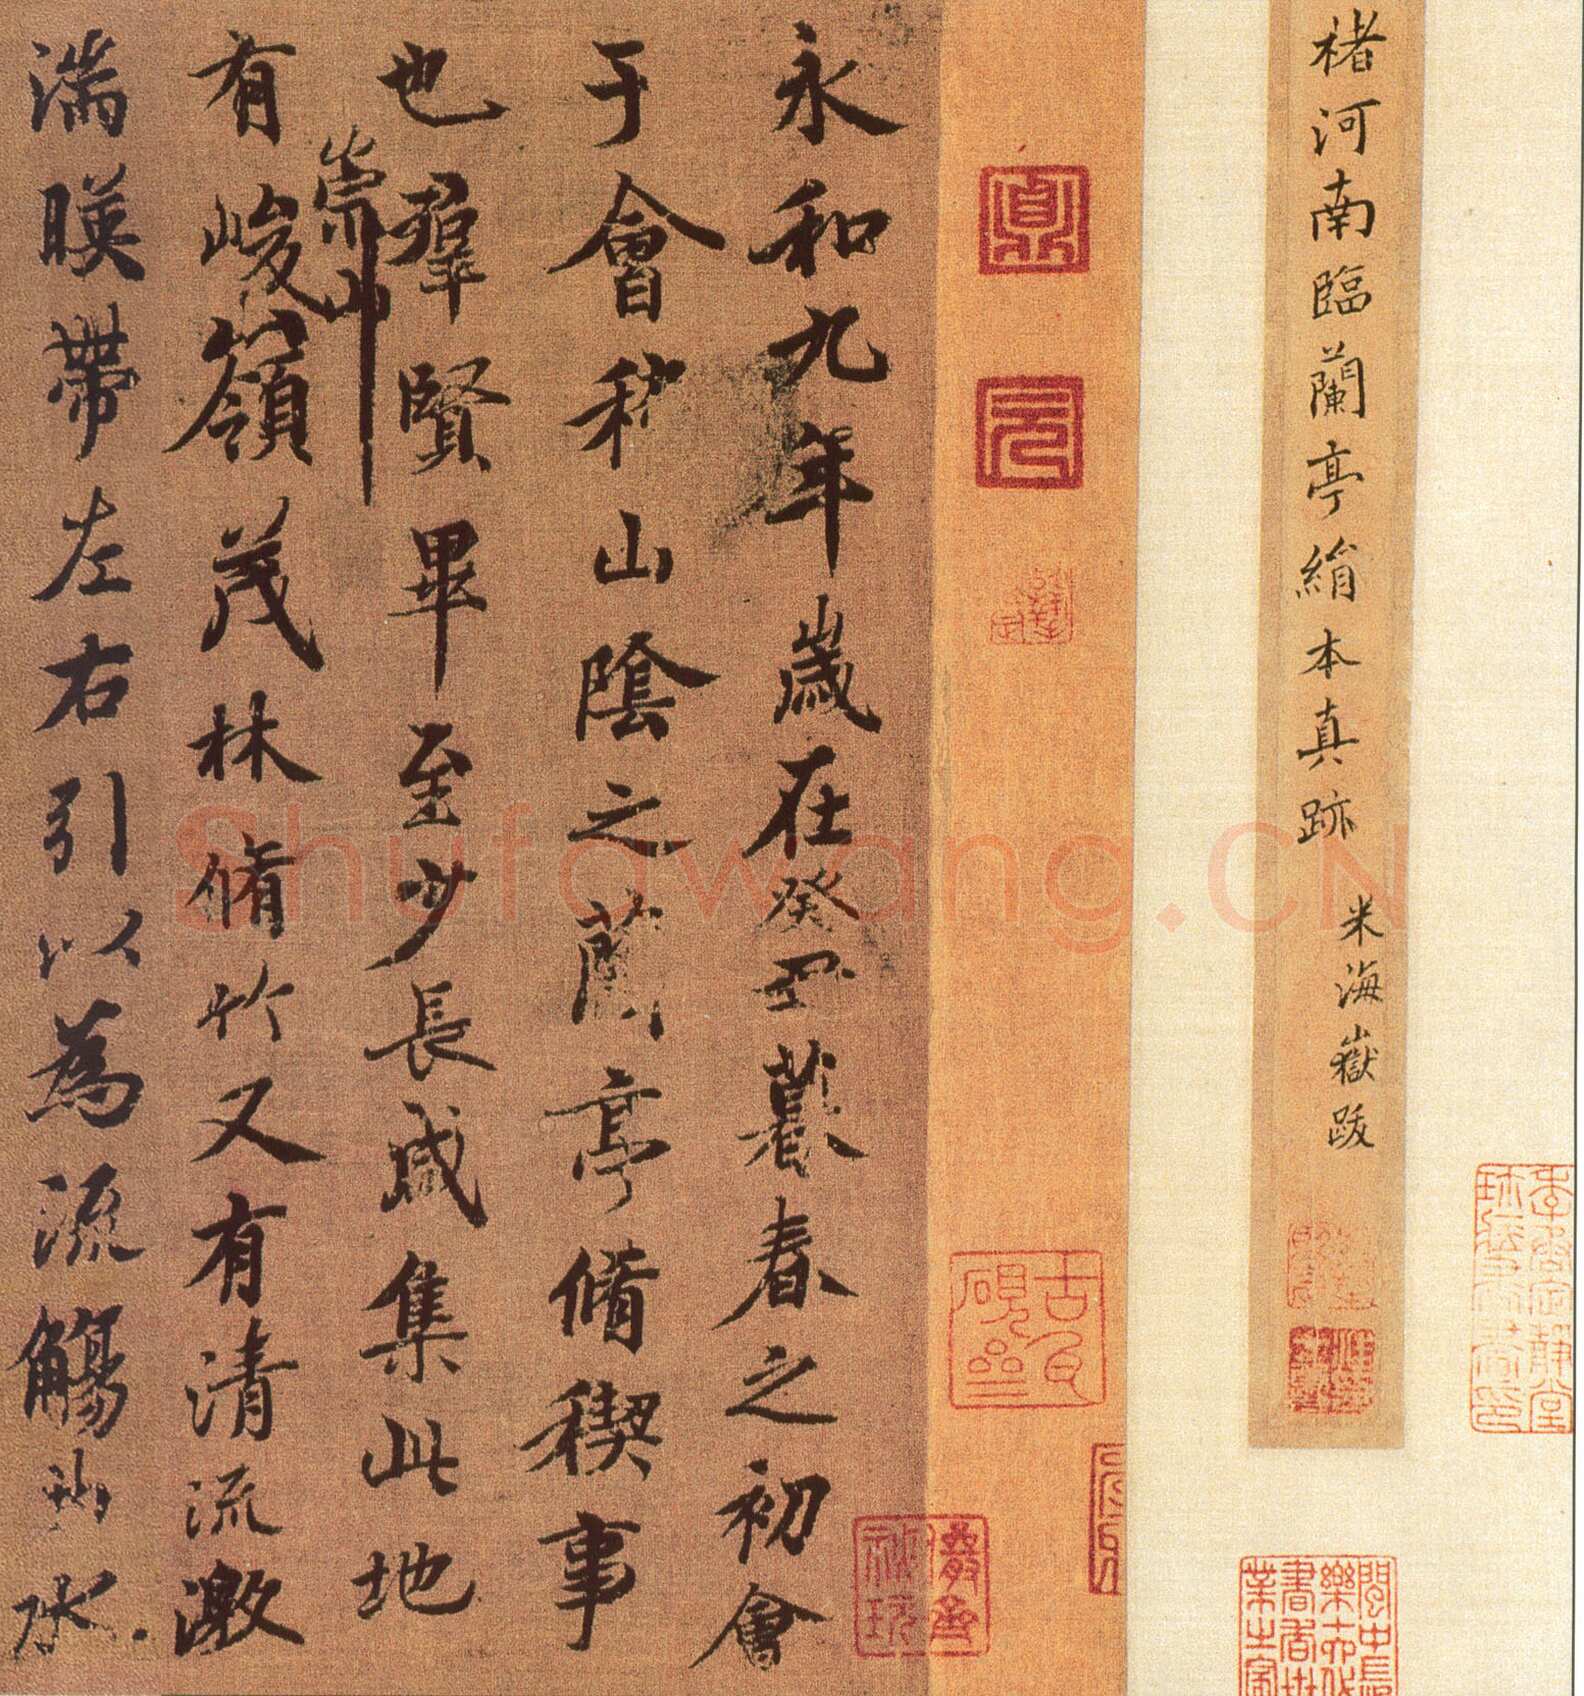 楮河南臨蘭亭絹本真跡 米海嶽跋
永和九年歲在癸丑暮春之初會
于會稽山陰之蘭亭脩稧事
也羣賢畢至少長咸集此地
有崇山峻嶺茂林脩竹又有清流激
湍暎帶左右引以為流觴曲水
儼齋秘玩
Shufawang.CN